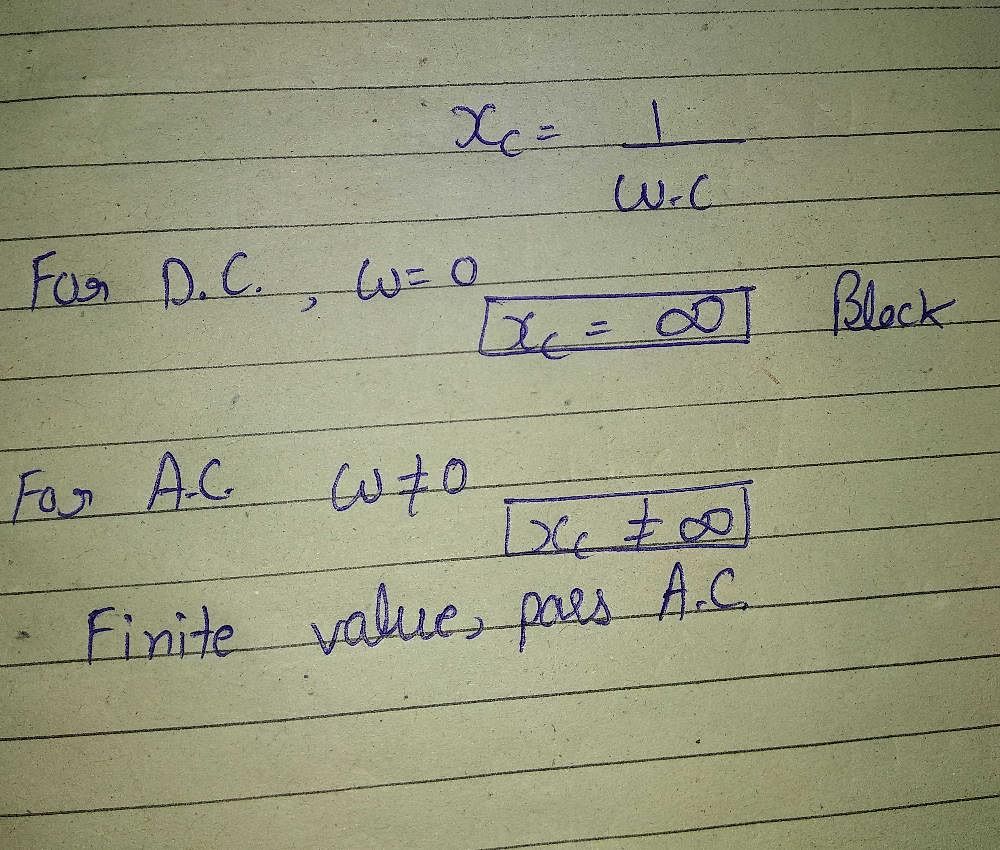 x_c = 1
ω.c
For D.C. , ω = 0
x_c = ∞ Block
For A.C. ω ≠ 0
x_c ≠ ∞
Finite value, pass A.C.